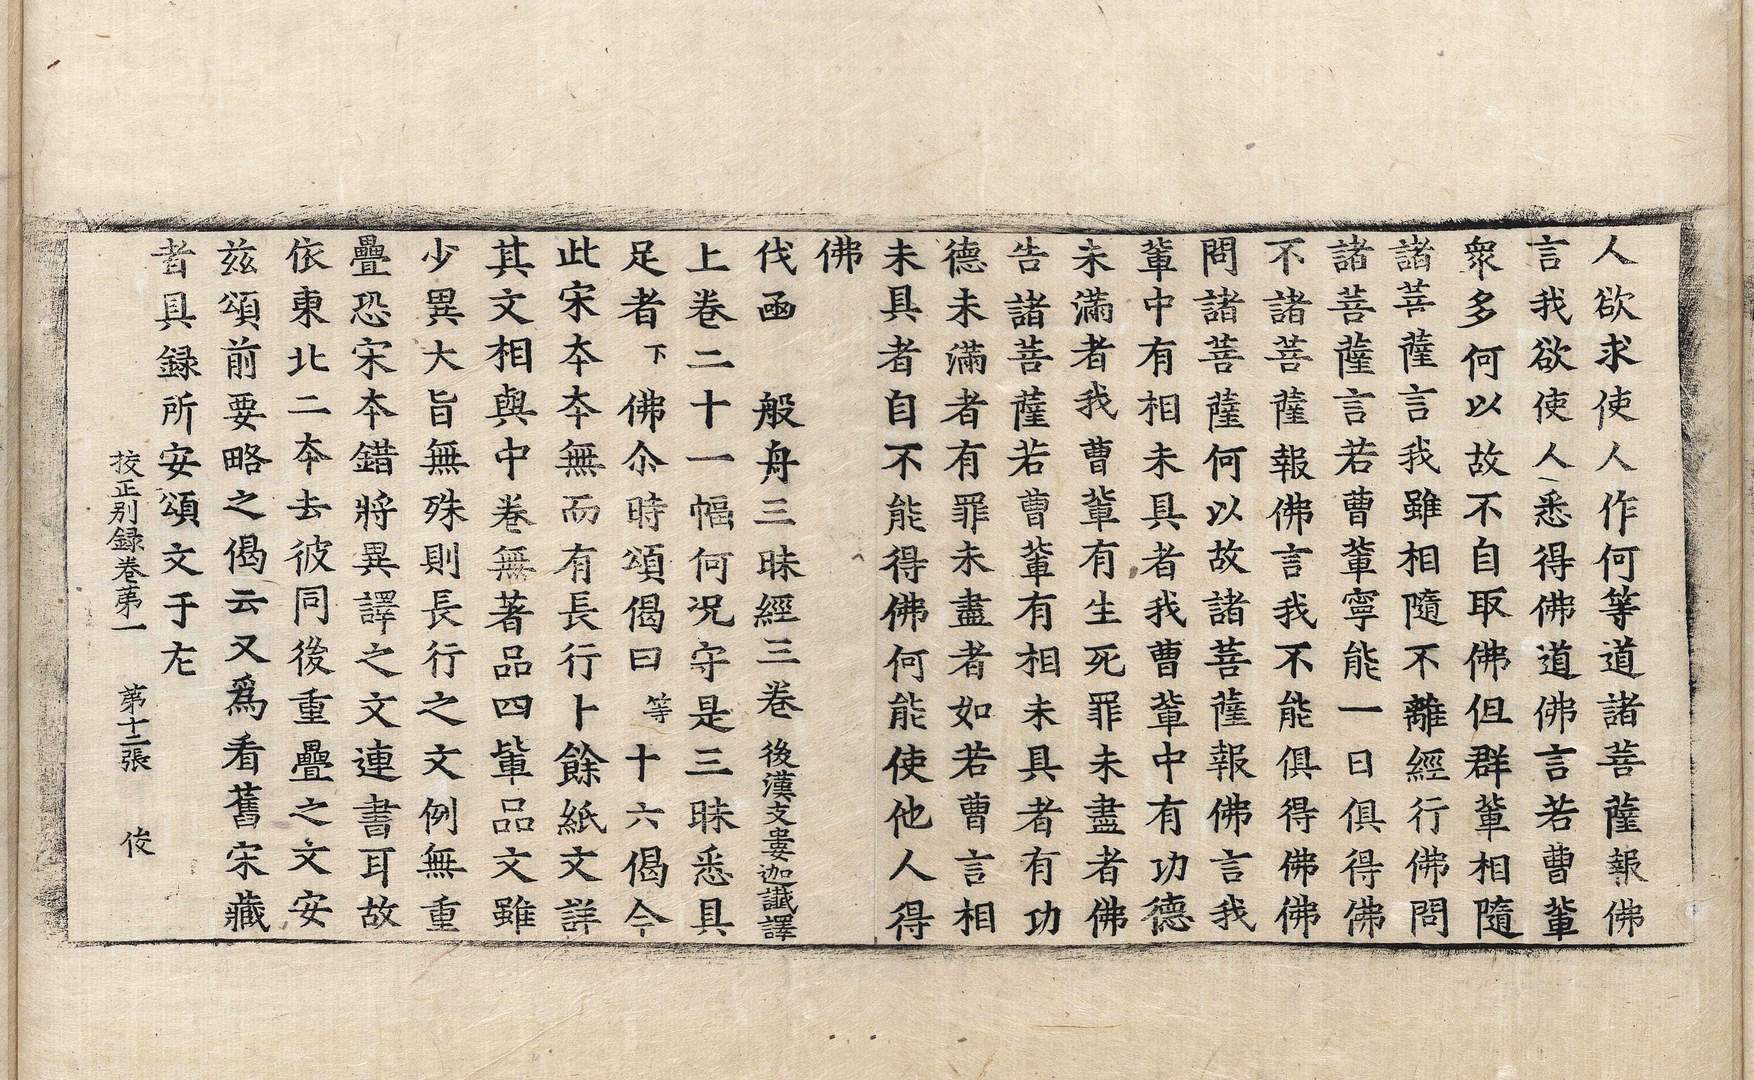 人欲求使人作何等道諸菩薩報佛
言我欲使人悉得佛道佛言若曹軰
衆多何以故不自取佛但群軰相隨
諸菩薩言我雖相隨不離經行佛問
諸菩薩言若曹軰寧能一日俱得佛
不諸菩薩報佛言我不能俱得佛佛
問諸菩薩何以故諸菩薩報佛言我
軰中有相未具者我曹軰中有功德
未滿者我曹軰有生死罪未盡者佛
告諸菩薩若曹軰有相未具者有功
德未滿者有罪未盡者如若曹言相
未具者自不能得佛何能使他人得
佛
伐函 般舟三昧經三卷 後漢支婁迦讖譯
上卷二十一幅何况守是三昧悉具
足者下佛尒時頌偈曰等十六偈今
此宋夲夲無而有長行卜餘紙文詳
其文相與中卷無著品四軰品文雖
少異大旨無殊則長行之文例無重
疊恐宋夲錯將異譯之文連書耳故
依東北二夲去彼同後重疊之文安
茲頌前要略之偈云又爲看舊宋藏
者具録所安頌文于左
挍正別録卷第一 第十二張 俊